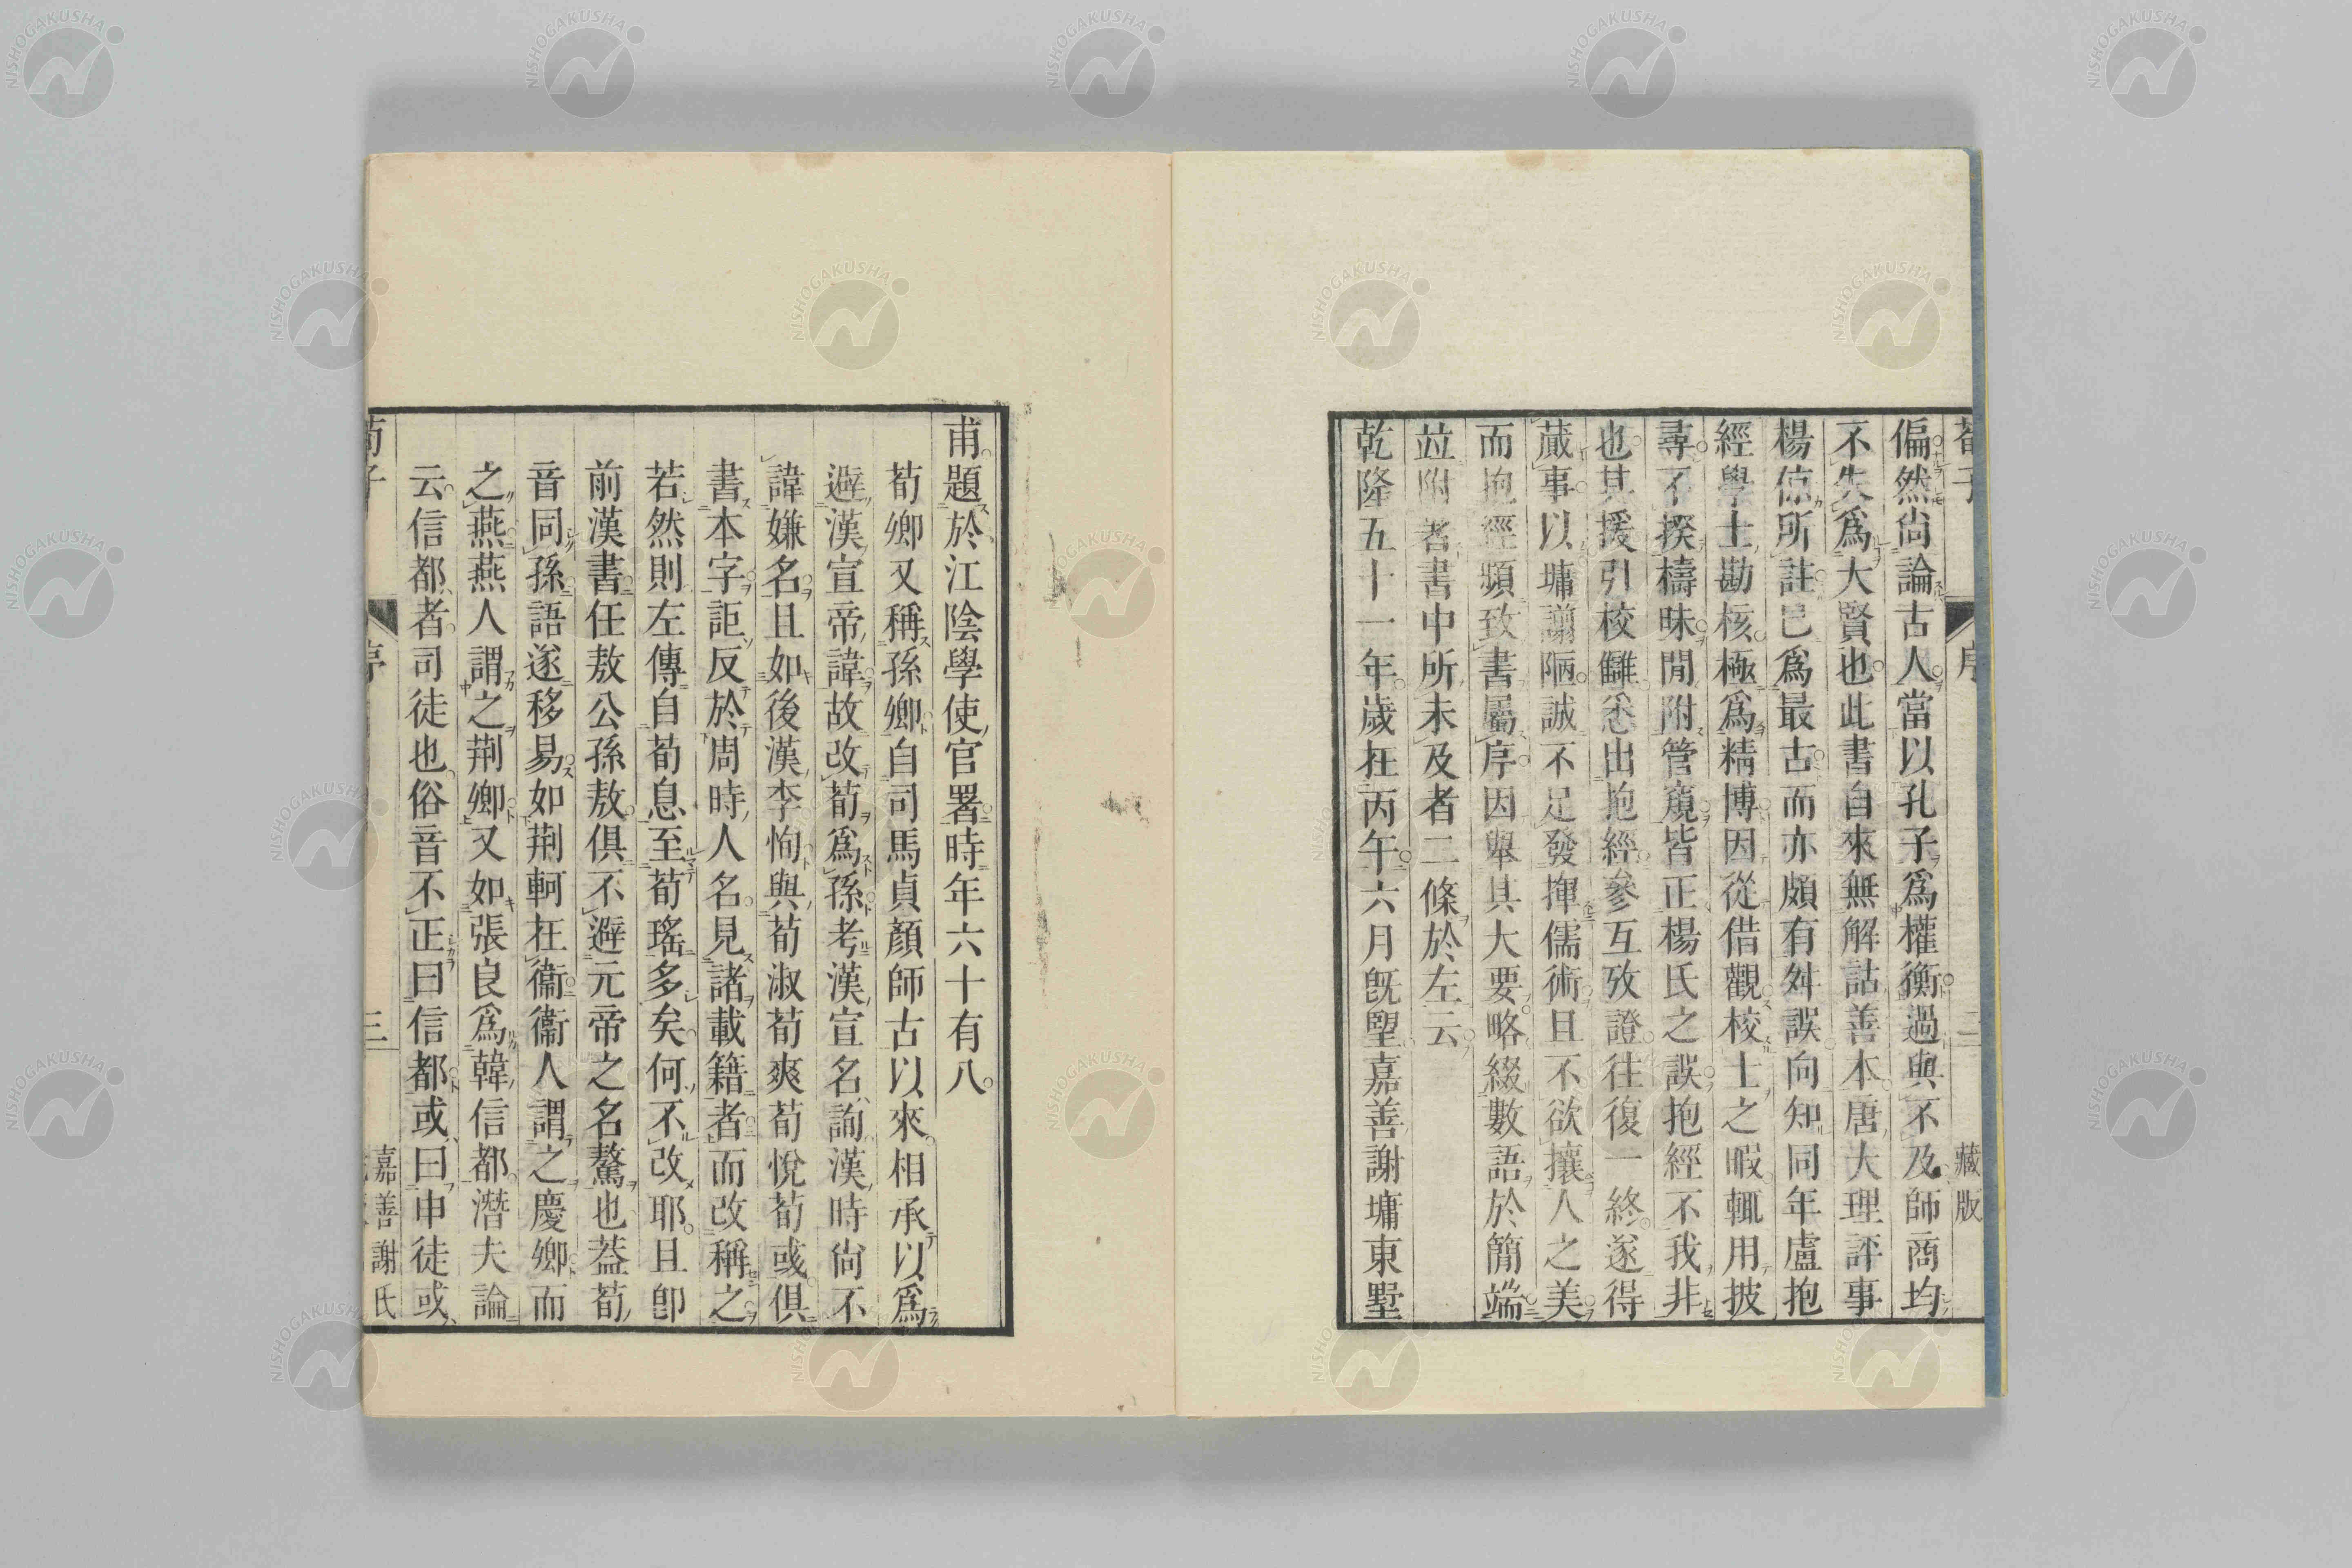 荀子 序 二 藏版
偏然尙論古人當以孔子爲權衡過與不及師商均
不失爲大賢也此書自來無解詁善本唐大理評事
楊倞所註已爲最古而亦頗有舛誤向知同年盧抱
經學士勘核極爲精博因從借觀校士之暇輒用披
尋不揆檮昧閒附管窺皆正楊氏之誤抱經不我非
也其援引校讎悉出抱經參互攷證往復一終遂得
蕆事以墉譾陋誠不足發揮儒術且不欲攘人之美
而抱經頻致書屬序因舉其大要略綴數語於簡端
竝附著書中所未及者二條於左云
乾隆五十一年歲在丙午六月旣望嘉善謝墉東墅
甫題於江陰學使官署時年六十有八
荀卿又稱孫卿自司馬貞顏師古以來相承以爲
避漢宣帝諱故改荀爲孫考漢宣名詢漢時尙不
諱嫌名且如後漢李恂與荀淑荀爽荀悅荀彧俱
書本字詎反於周時人名見諸載籍者而改稱之
若然則左傳自荀息至荀瑤多矣何不改耶且卽
前漢書任敖公孫敖俱不避元帝之名驁也葢荀
音同孫語遂移易如荆軻在衞衞人謂之慶卿而
之燕燕人謂之荆卿又如張良爲韓信都潛夫論
云信都者司徒也俗音不正曰信都或曰申徒或
荀子 序 三 嘉善謝氏
NISHOGAKUSHA